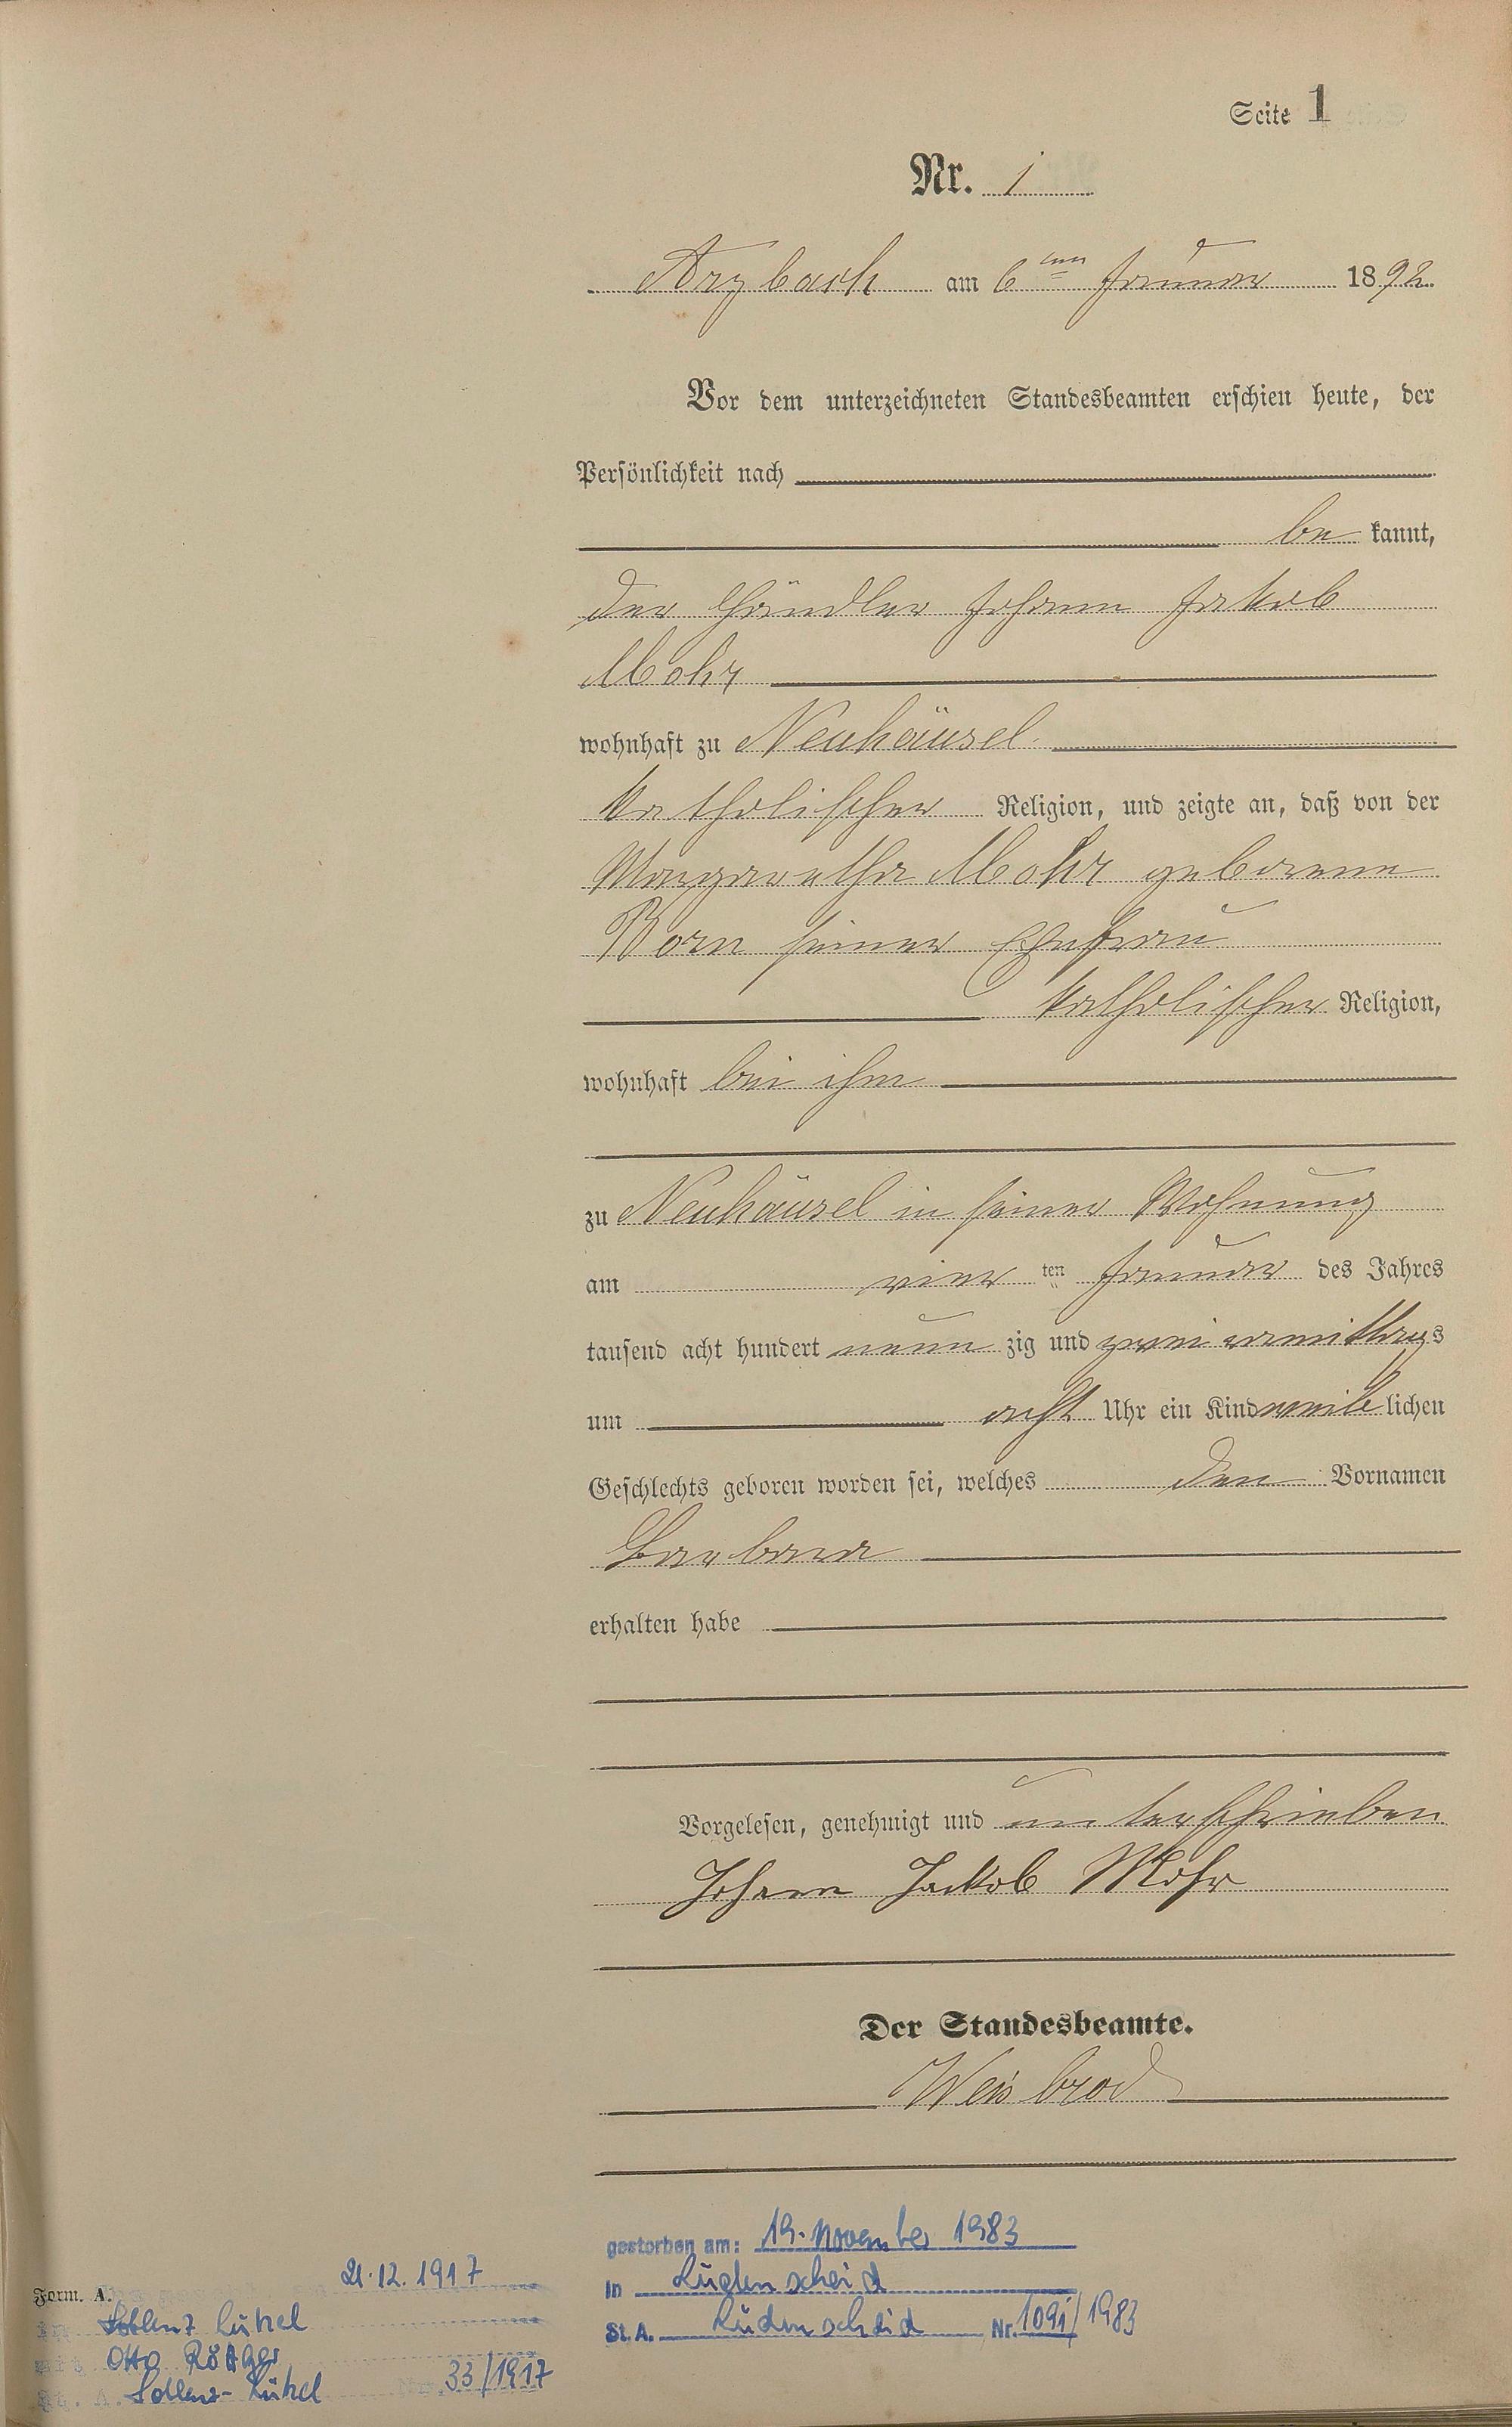 Seite 1
Nr. 1
Arzbach am 6ten Januar 1892.
Vor dem unterzeichneten Standesbeamten erschien heute, der
Persönlichkeit nach
be kannt,
der Händler Johann Jakob
Mohr
wohnhaft zu Neuhäusel
katholischer Religion, und zeigte an, daß von der
Margaretha Mohr geborene
Born seiner Ehefrau
katholischer Religion,
wohnhaft bei ihm
zu Neuhäusel in seiner Wohnung
am vier ten Januar des Jahres
tausend acht hundert neun zig und zwei vormittags
um acht Uhr ein Kind weib lichen
Geschlechts geboren worden sei, welches den Vornamen
Barbara
erhalten habe
Vorgelesen, genehmigt und unterschrieben
Johann Jackob Mohr
Der Standesbeamte.
Weisbrod
gestorben am: 19. November 1983
in Lüdenscheid
St. A. Lüdenscheid Nr. 1091/1983
Form. A.
21.12.1917
Koblenz Lützel
Otto Röttger
St. A. Koblenz-Lützel No. 33/1917